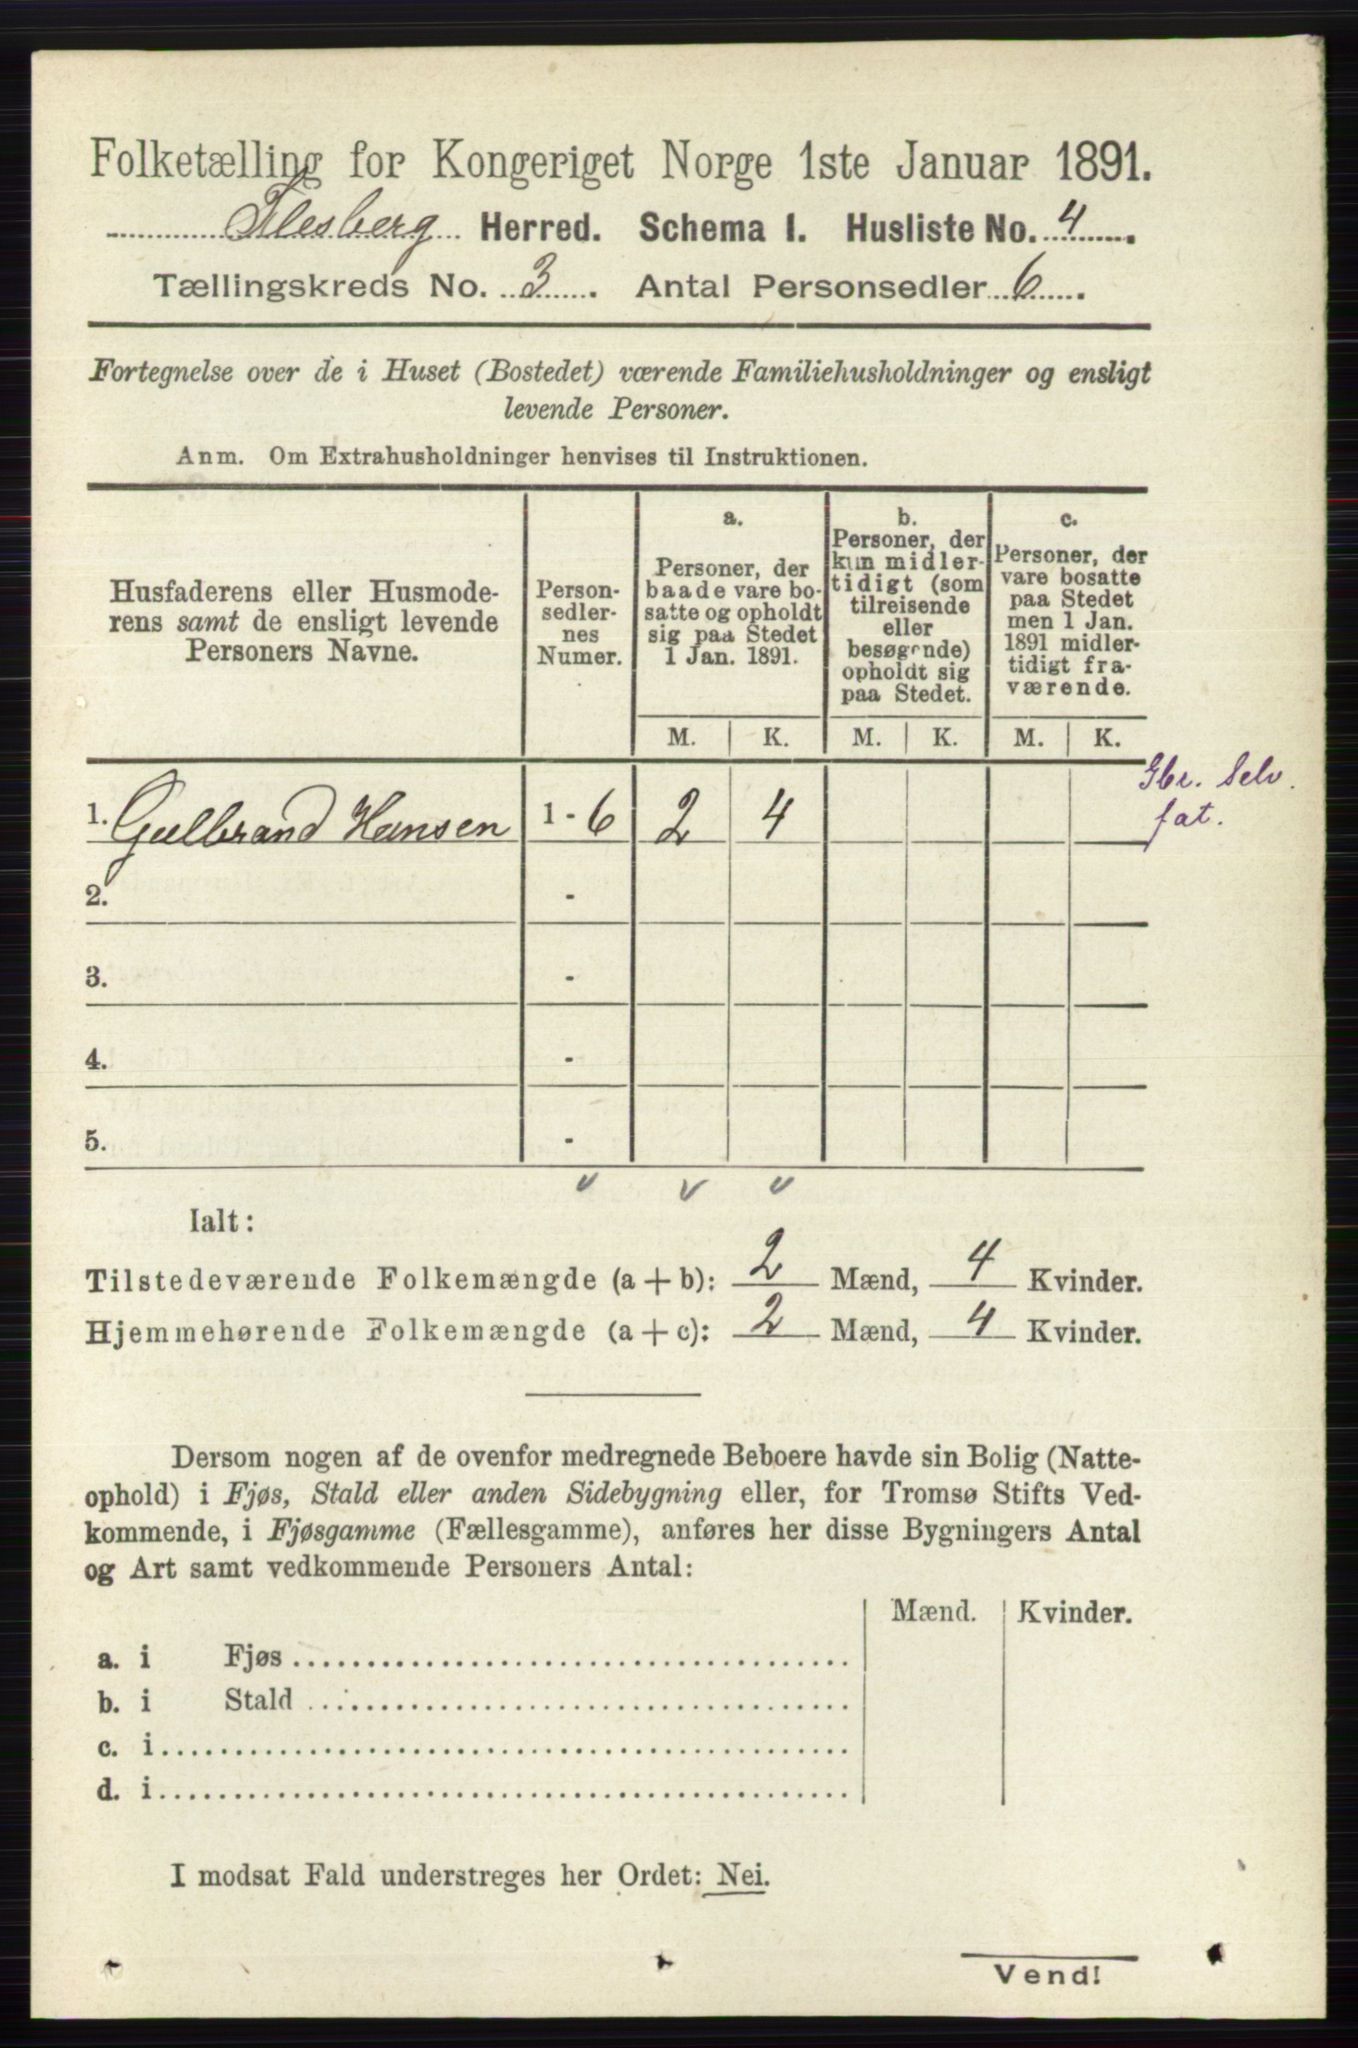 Folketælling for Kongeriget Norge 1ste Januar 1891.
Flesberg Herred. Schema 1. Husliste No. 4
Tællingskreds No. 3. Antal Personsedler 6.
Fortegnelse over de i Huset (Bostedet) værende Familiehusholdninger og ensligt
levende Personer.
Anm. Om Extrahusholdninger henvises til Instruktionen.
Husfaderens eller Husmode-
rens samt de ensligt levende
Personers Navne.
Person-
sedler-
nes
Numer.
a.
Personer, der
baade vare bo-
satte og opholdt
sig paa Stedet
1 Jan. 1891.
b.
Personer, der
kun midler-
tidigt (som
tilreisende
eller
besøgende)
opholdt sig
paa Stedet.
c.
Personer, der
vare bosatte
paa Stedet
men 1 Jan.
1891 midler-
tidigt fra-
værende.
M. K. M. K. M. K.
1. Gulbrand Hansen 1 - 6 2 4
Gbr. Selv.
fat.
2. -
3. -
4. -
5. -
Ialt:
Tilstedeværende Folkemængde (a + b): 2 Mænd, 4 Kvinder.
Hjemmehørende Folkemængde (a + c): 2 Mænd, 4 Kvinder.
Dersom nogen af de ovenfor medregnede Beboere havde sin Bolig (Natte-
ophold) i Fjøs, Stald eller anden Sidebygning eller, for Tromsø Stifts Ved-
kommende, i Fjøsgamme (Fællesgamme), anføres her disse Bygningers Antal
og Art samt vedkommende Personers Antal:
Mænd. Kvinder.
a. i Fjøs
b. i Stald
c. i
d. i
I modsat Fald understreges her Ordet: Nei.
Vend!